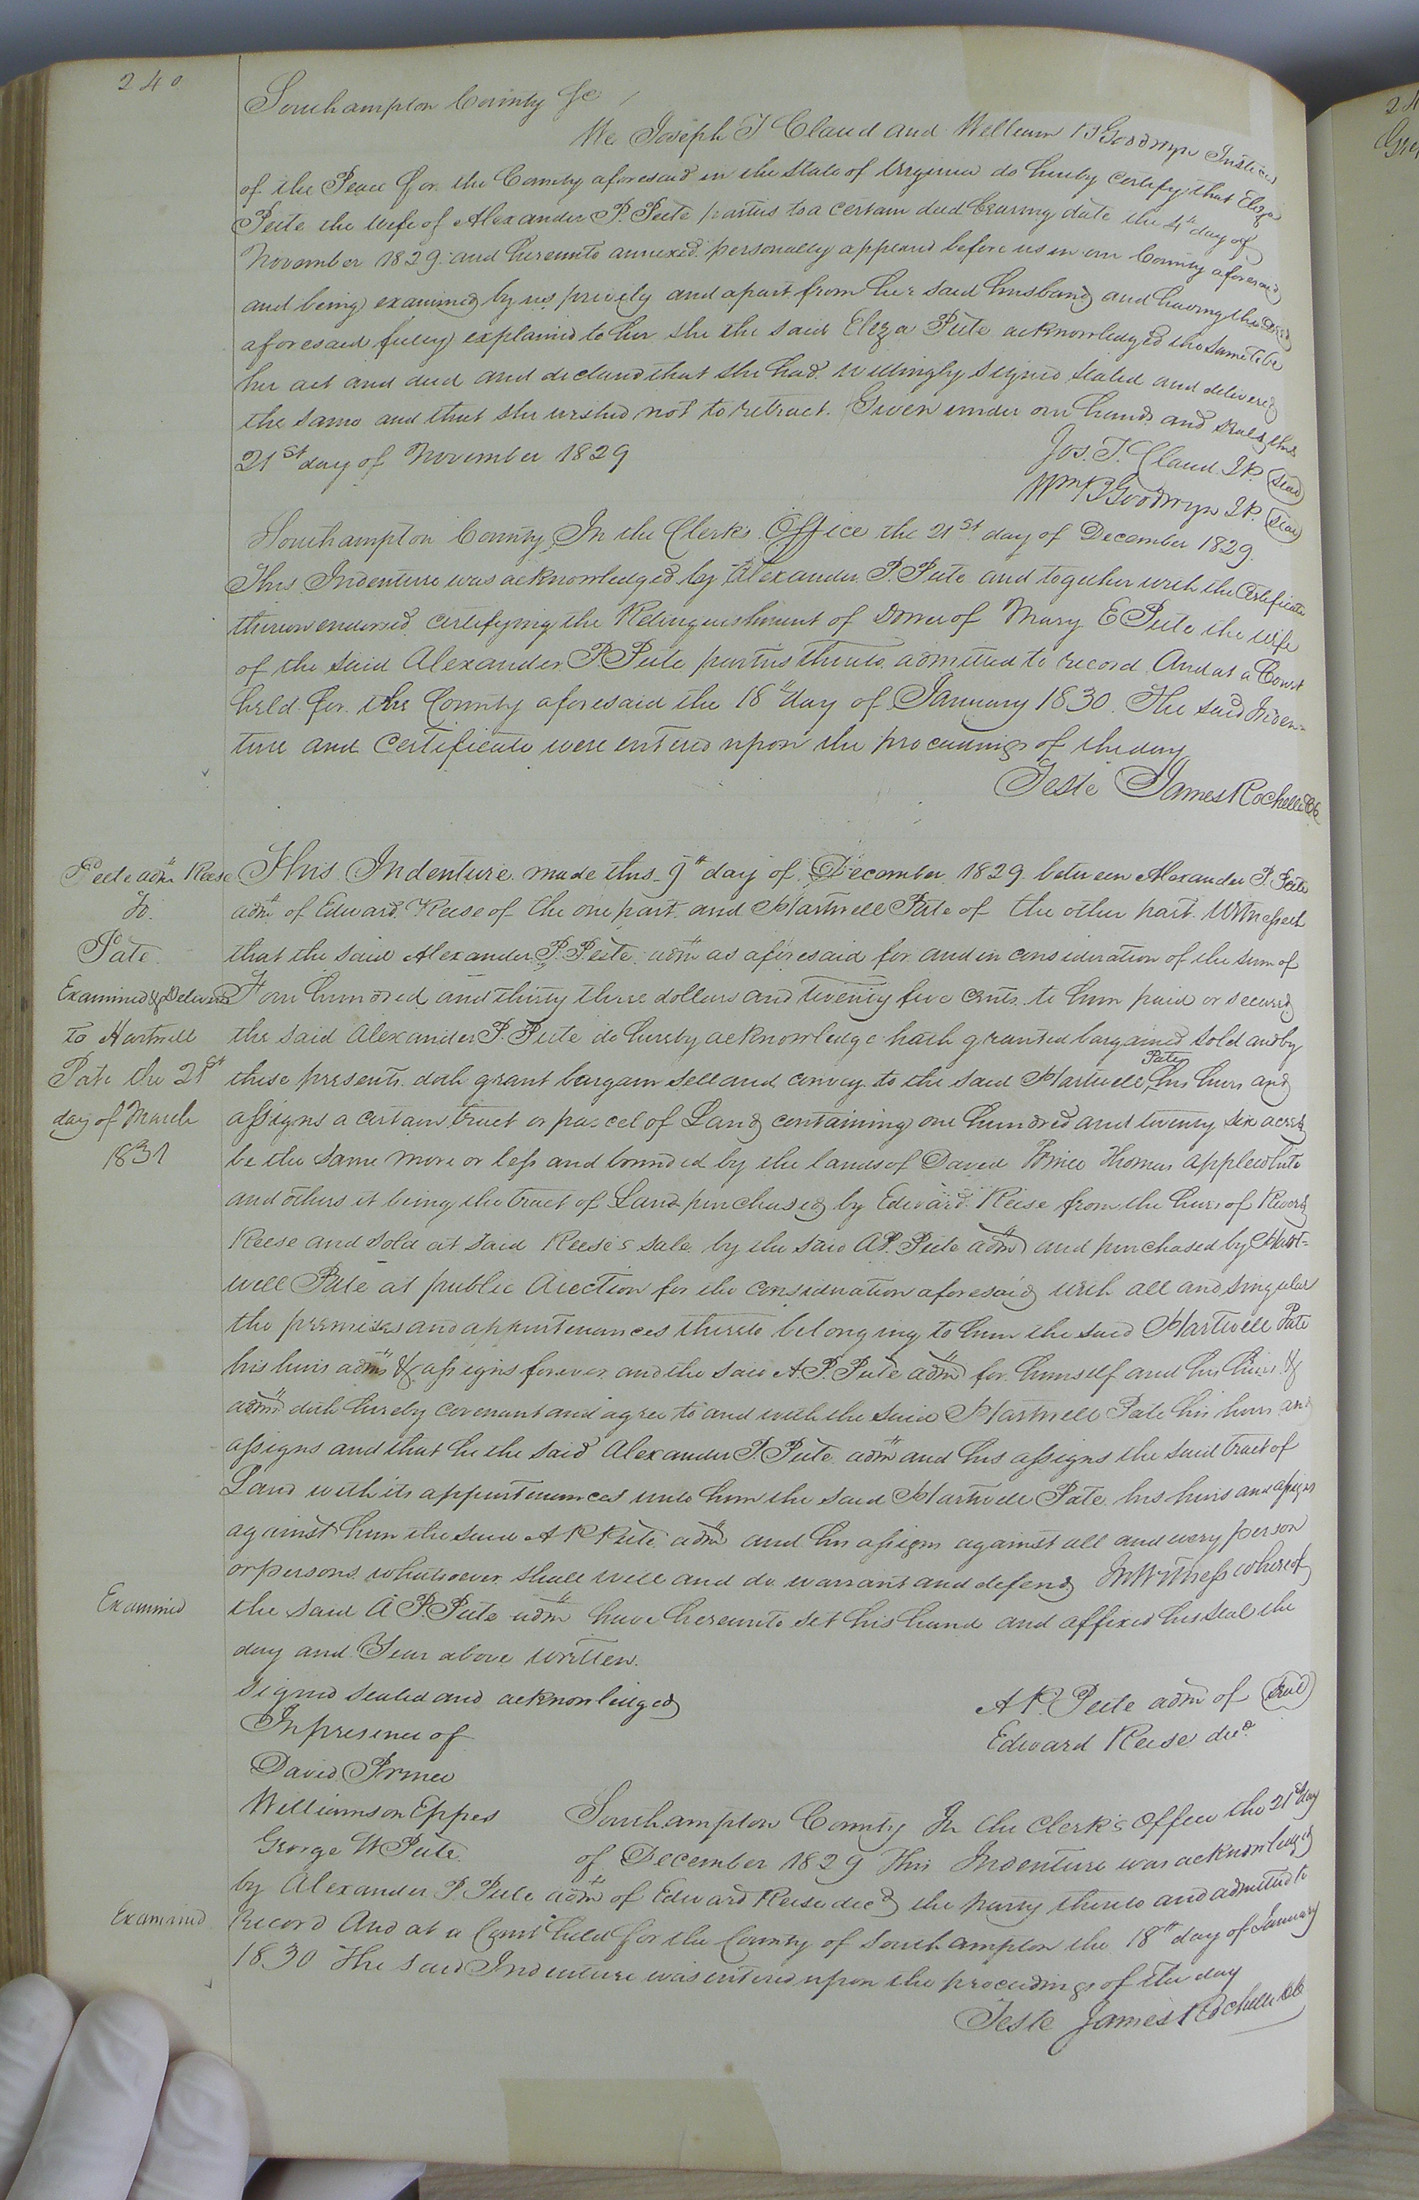 240
Southampton County Sc
We Joseph T Claud and William B Goodwyn Justices
of the Peace for the County aforesaid in the State of Virginia do hereby certify that Eliza
Peete the wife of Alexander P. Peete parties to a certain deed bearing date the 4th day of
November 1829 and hereunto annexed personally appeared before us in our County aforesaid
and being examined by us privily and apart from her said husband and having the deed
aforesaid fully explained to her she the said Eliza Peete acknowledged the same to be
her act and deed and declared that she had willingly signed sealed and delivered
the same and that she wished not to retract. Given under our hands and seals this
21st day of November 1829
Jos. T. Claud J.P. Seal
Wm B Goodwyn J.P. Seal
Southampton County In the Clerk's Office the 21st day of December 1829
This Indenture was acknowledged by Alexander P. Peete and together with the Certificate
thereon endorsed certifying the Relinquishment of Dower of Mary E Peete the wife
of the said Alexander P Peete parties thereto admitted to record And at a Court
held for the County aforesaid the 18th day of January 1830. The said Inden-
ture and Certificate were entered upon the proceedings of the day
Teste James Rochelle CC
Peete adm Reese
To
Pate
Examined & Delivered
to Hartwell
Pate the 21st
day of March
1831
This Indenture made this 9th day of December 1829 between Alexander P. Peete
adm of Edward Reese of the one part and Hartwell Pate of the other part Witnesseth
that the said Alexander P. Peete adm as aforesaid for and in consideration of the sum of
Four hundred and thirty three dollars and twenty five cents to him paid or secured
the said Alexander P. Peete do hereby acknowledge hath granted bargained sold and by
these presents doth grant bargain sell and convey to the said Hartwell Pate his heirs and
assigns a certain tract or parcel of Land containing one hundred and twenty six acres
be the same more or less and bounded by the lands of David Prince Thomas Applewhite
and others it being the tract of Land purchased by Edward Reese from the heirs of
Reese and sold at said Reese's sale by the said A P. Peete adm and purchased by Hart-
well Pate at public Auction for the consideration aforesaid with all and singular
the premises and appurtenances thereto belonging to him the said Hartwell Pate
his heirs adms & assigns forever and the said A. P. Peete adm for himself and his heirs &
adms doth hereby covenant and agree to and with the said Hartwell Pate his heirs and
assigns and that he the said Alexander P. Peete adm and his assigns the said tract of
Land with its appurtenances unto him the said Hartwell Pate his heirs and assigns
against him the said A P Peete adm and his assigns against all and every person
or persons whatsoever shall will and do warrant and defend In Witness whereof
Examined
the said A P. Peete adm have hereunto set his hand and affixed his seal the
day and Year above written.
Signed sealed and acknowledged
In presence of
David Prince
Williamson Eppes
George W Peete
A. P. Peete adm of Seal
Edward Reese decd
Southampton County In the Clerk's Office the 21st day
of December 1829 This Indenture was acknowledged
by Alexander P Peete adm of Edward Reese decd the party thereto and admitted to
Examined
Record And at a Court held for the County of Southampton the 18th day of January
1830 The said Indenture was entered upon the proceedings of the day
Teste James Rochelle CC